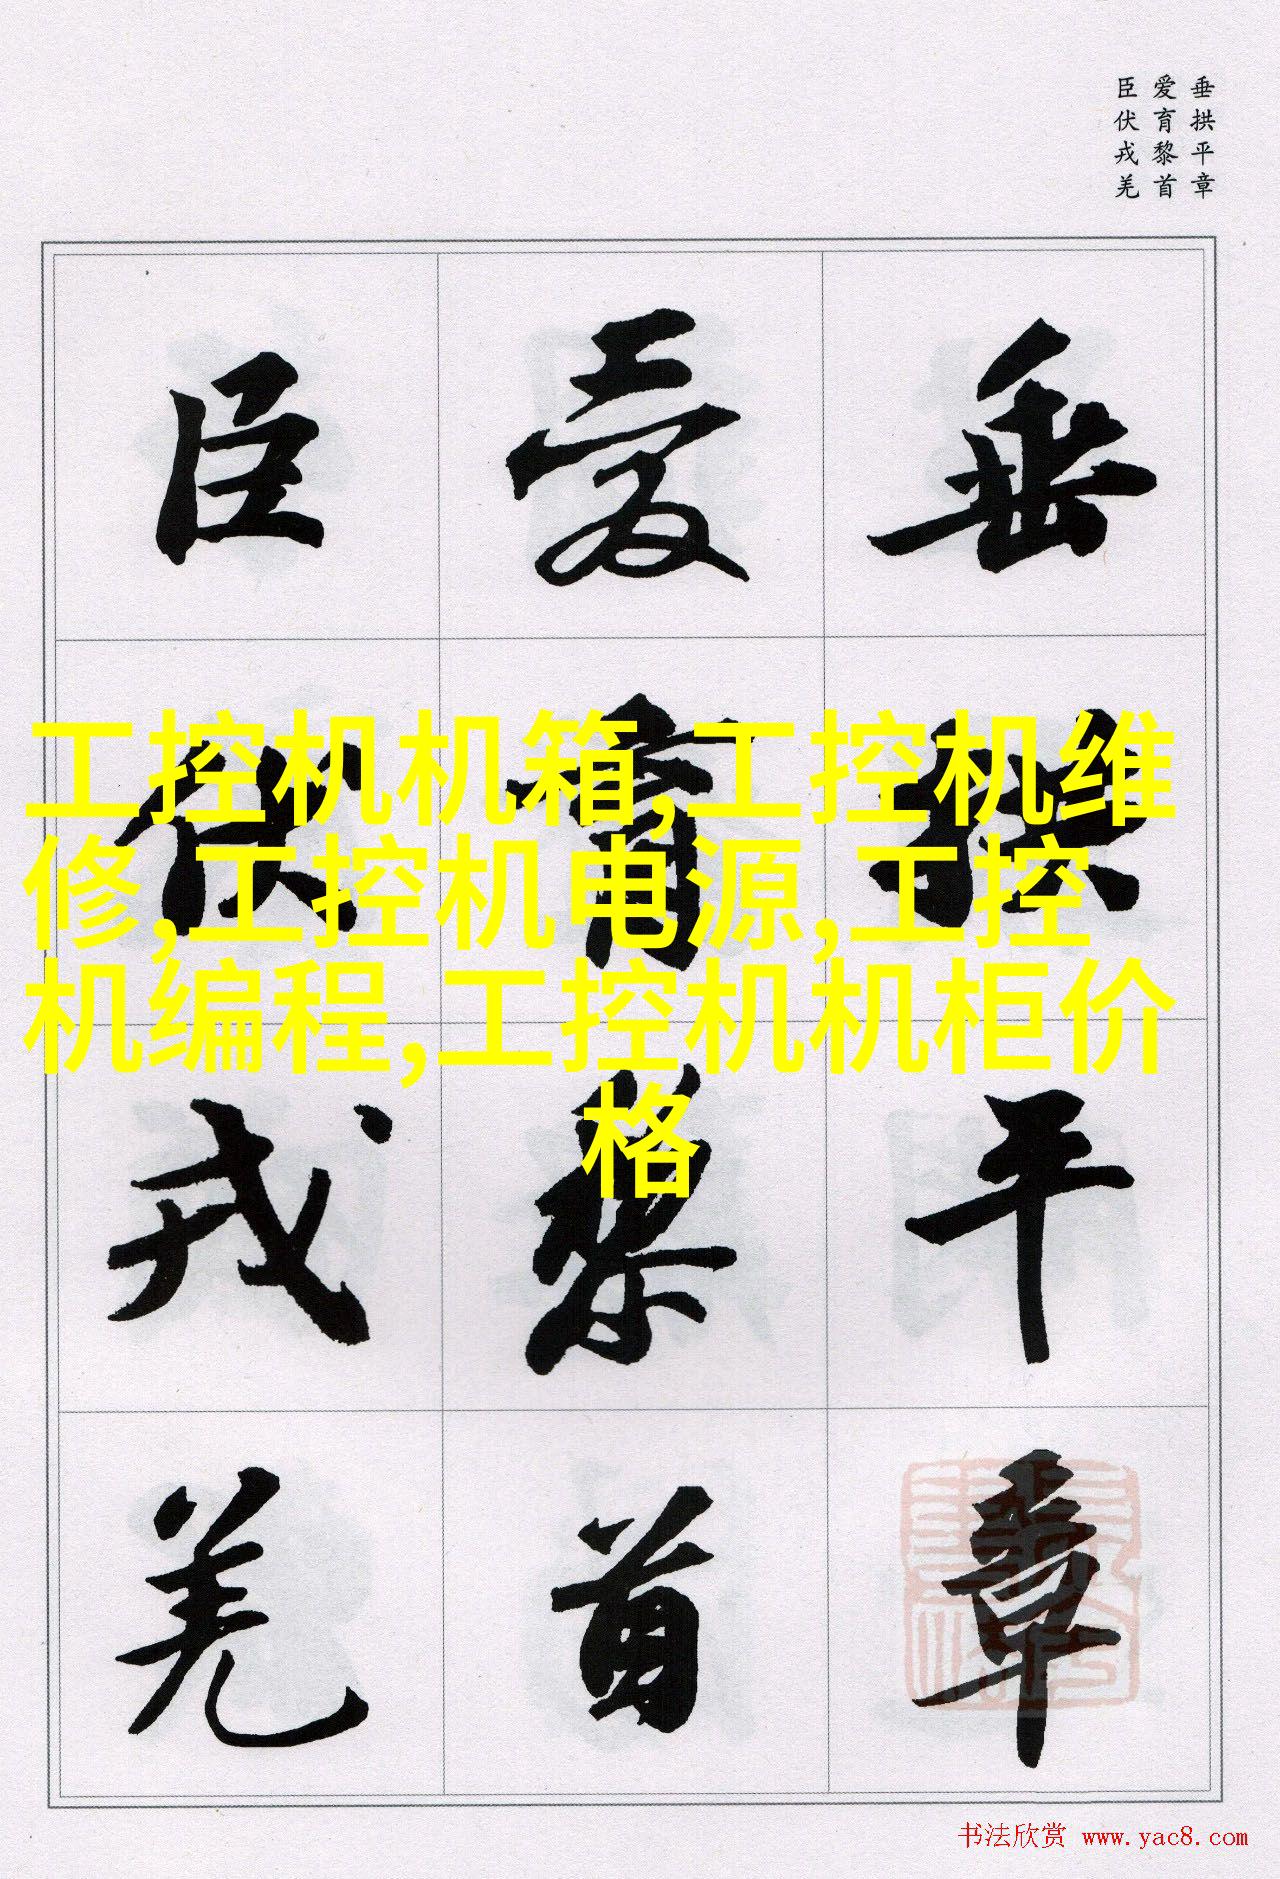 垂拱平章
爱育黎首
臣伏戎羌
垂拱平章
爱育黎首
臣伏戎羌
工控机机箱,工控机维
修,工控机电源,工控
机编程,工控机机柜价
格
书法欣赏 www.yac8.com